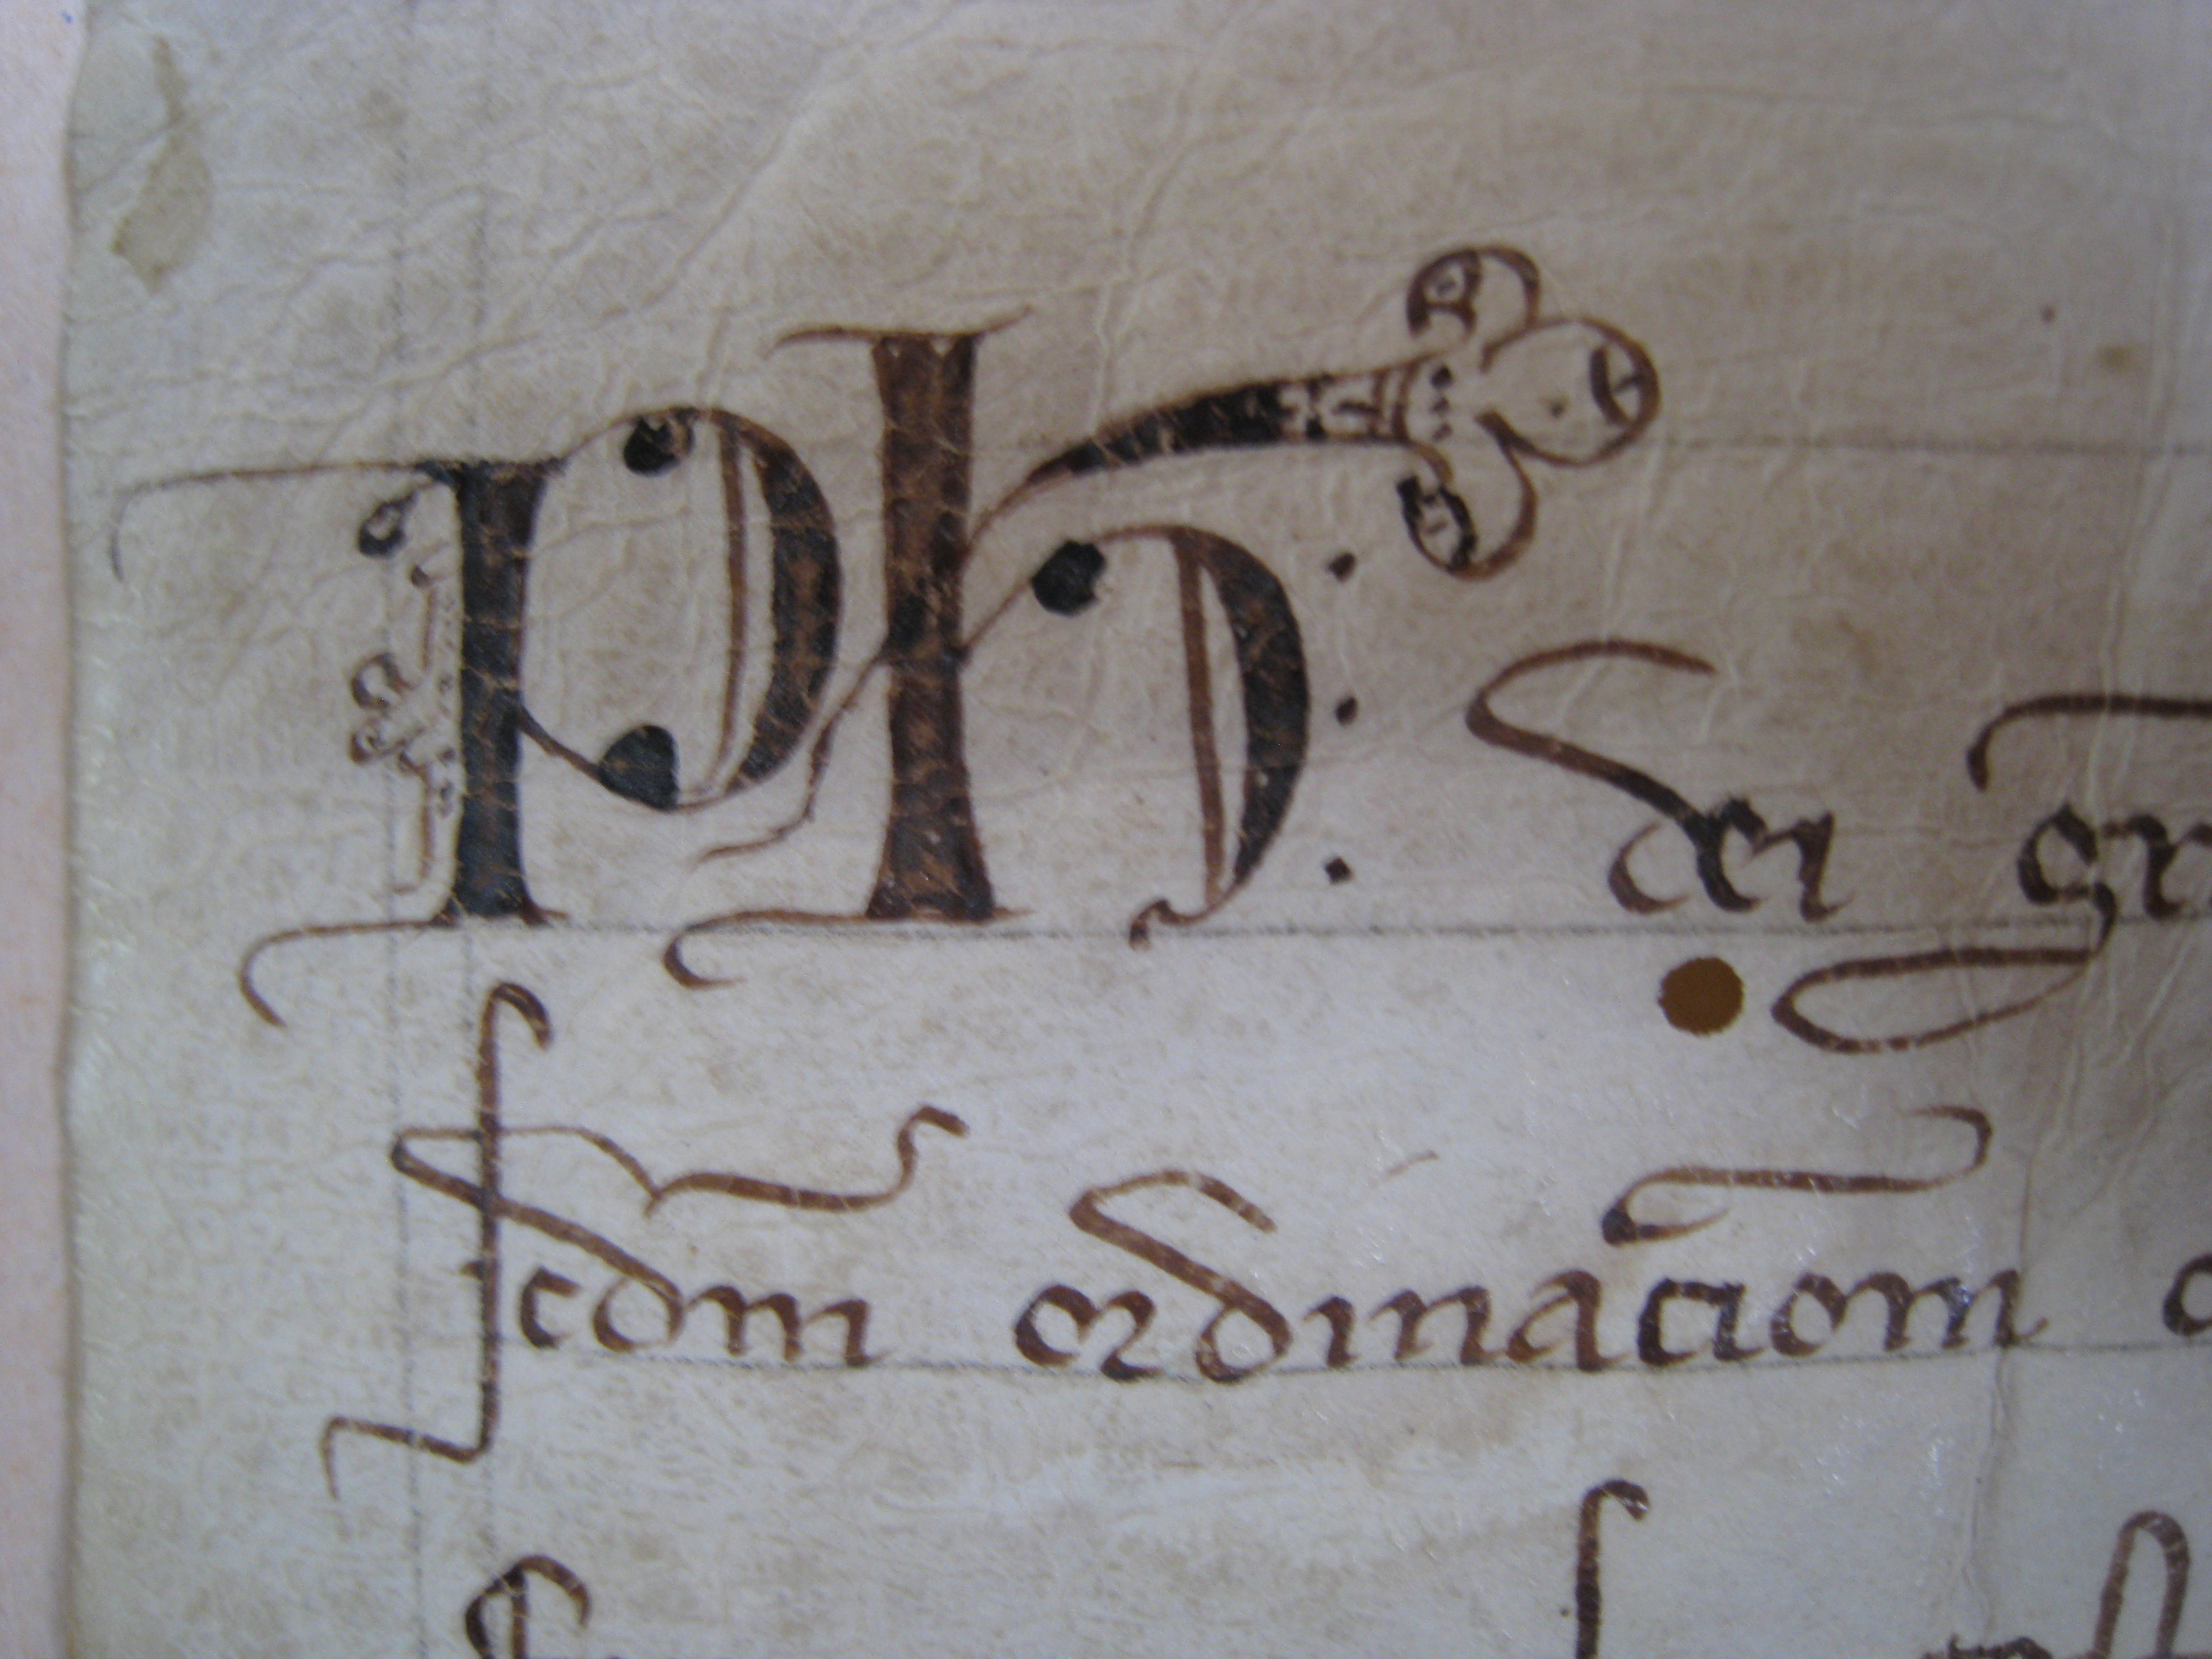 Ph: dei gr
scdm ordinaciom